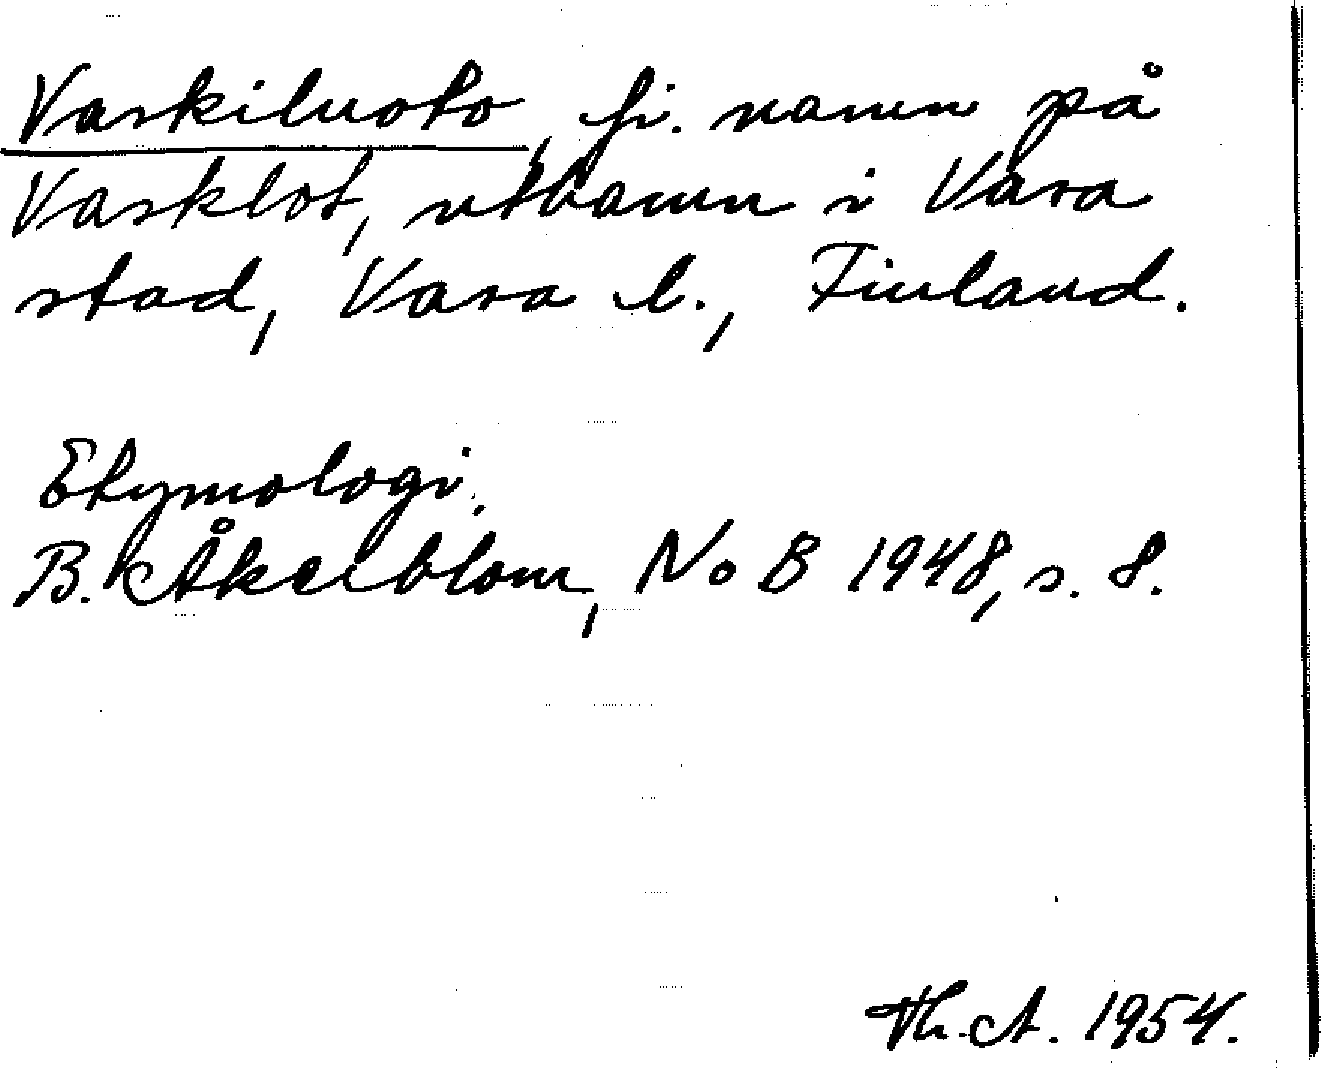 Vaskiluoto, fi. namn på
Vasklot, uthamn i Vasa
stad, Vasa l., Finland.
Etymologi.
B. Åkerblom, NoB 1948, s. 8.
Th. A. 1954.